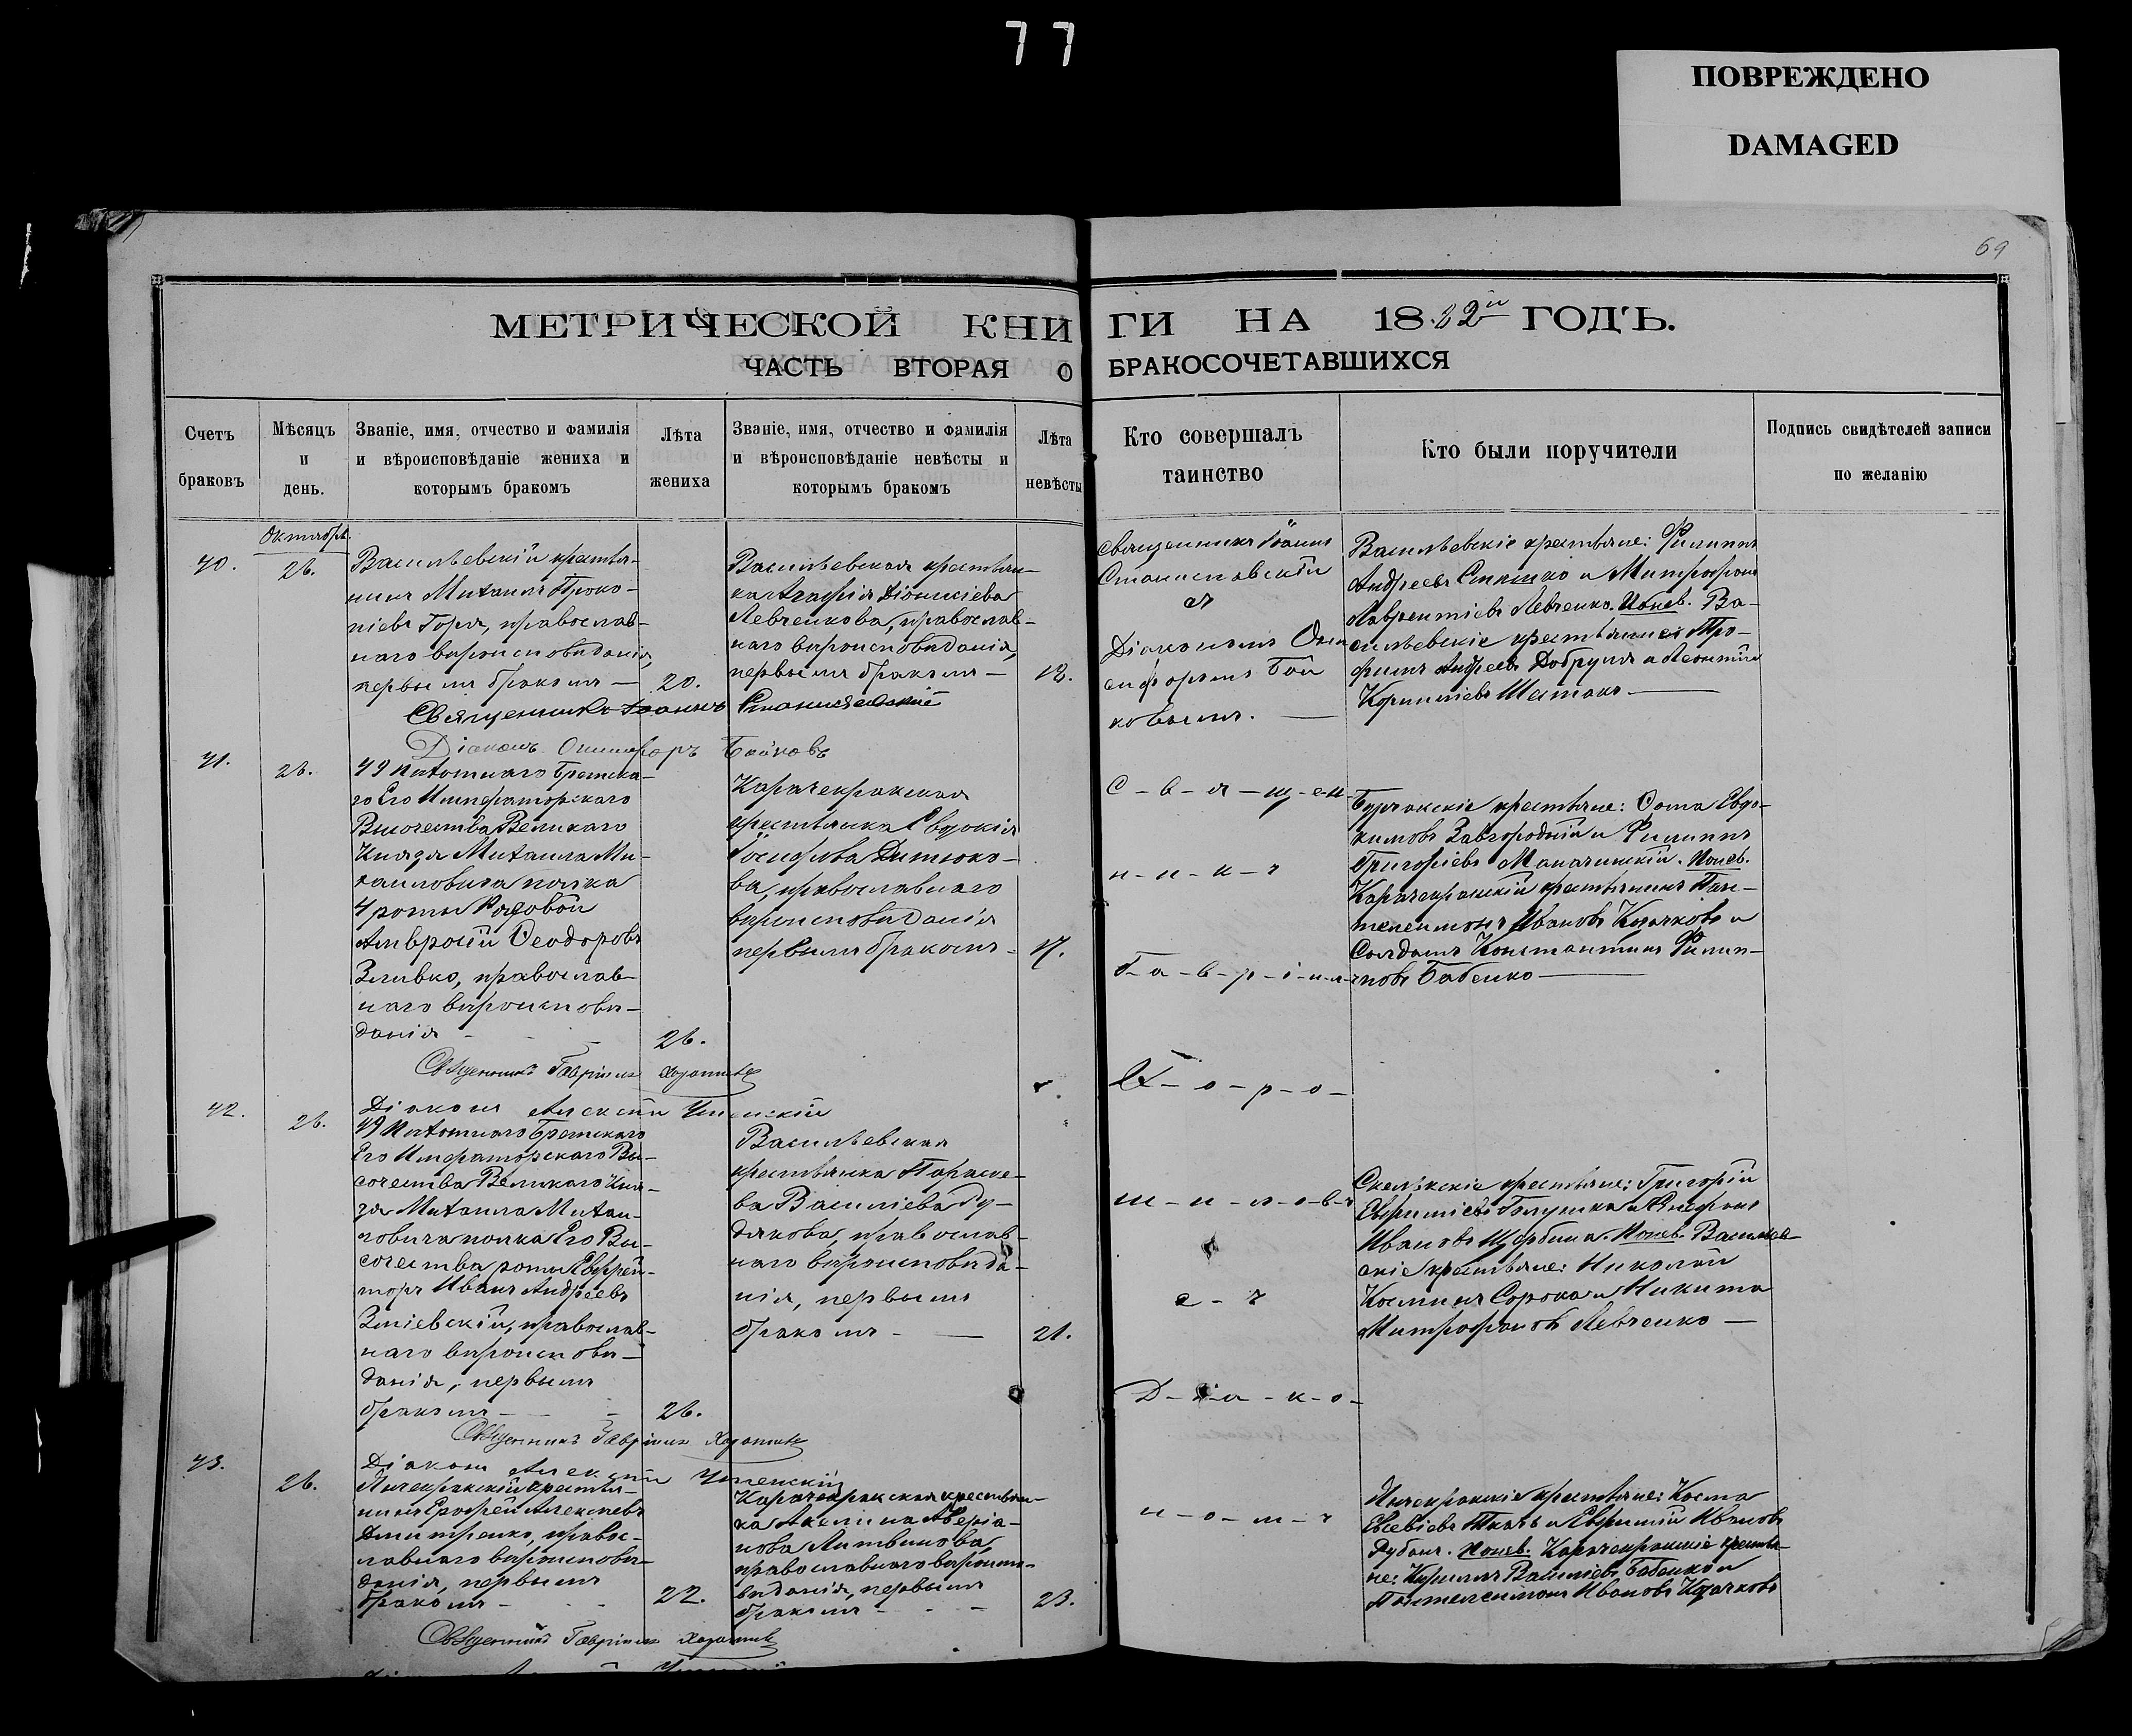 77
ПОВРЕЖДЕНО
DAMAGED
69
МЕТРИЧЕСКОЙ КНИГИ НА 1882й ГОДЪ.
ЧАСТЬ ВТОРАЯ О БРАКОСОЧЕТАВШИХСЯ
Счетъ браковъ
Мѣсяцъ и день.
Званіе, имя, отчество и фамилія
и вѣроисповѣданіе жениха и
которымъ бракомъ
Лѣта жениха
Званіе, имя, отчество и фамилія
и вѣроисповѣданіе невѣсты и
которымъ бракомъ
Лѣта невѣсты
Кто совершалъ
таинство
Кто были поручители
Подпись свидѣтелей записи
по желанію
Октябрь
40.
26.
Васильевскій крестья-
нинъ Михаилъ Проко-
піевъ Горя, православ-
наго вѣроисповѣданія,
первымъ бракомъ —
20.
Васильевская крестьян-
ка Агафія Діонисіева
Левченкова, православ-
наго вѣроисповѣданія,
первымъ бракомъ —
18.
Священникъ Іоаннъ
Станиславскій
съ
Діакономъ Они
сифоромъ Бой
ковымъ.
Васильевскіе крестьяне: Филиппъ
Андреевъ и Митрофанъ
Лаврентіевъ Левченко. Ва-
сильевскіе крестьяне: Тро-
фимъ Андреевъ Добруля и Леонтій
Корниліевъ
Священникъ Іоаннъ Станиславскій
Діаконъ Онисифоръ Бойковъ
41.
26.
49 пѣхотнаго Брестска-
го Его Императорскаго
Высочества Великаго
Князя Михаила Ми-
хаиловича полка
4 роты Рядовой
Амвросій Ѳеодоровъ
Зливко, православ-
наго вѣроисповѣ-
данія
26.
Карачекракская
крестьянка Евдокія
Іосифова Дитюко-
ва, православнаго
вѣроисповѣданія
первымъ бракомъ -
17.
С - в - я - щ - ен-
н - и - к - ъ
Г - а - в - р - і - и - л - ъ
Бурчакскіе крестьяне: Ѳома Евдо-
кимовъ Завгородній и Филиппъ
Григоріевъ . Понев.
Карачекракскій крестьянинъ Пан-
телеимонъ Ивановъ Козачковъ и
Солдатъ Константинъ Филип-
повъ Бабенко
Священникъ Гавріилъ
Діаконъ Алексій Успенскій
Х - о - р - о -
42.
26.
49 пѣхотнаго Брестскаго
Его Императорскаго Вы-
сочества Великаго Кня-
зя Михаила Михаи-
ловича полка Его Вы-
сочества роты Ефрей-
торъ Иванъ Андреевъ
Зміевскій, православ-
наго вѣроисповѣ-
данія, первымъ
бракомъ
26.
Васильевская
крестьянка Параске-
ва Василіева Ду-
дякова, православ-
наго вѣроисповѣда-
нія, первымъ
бракомъ -
21.
ш - и - л - о - в - ъ
с - ъ
Д - і - а - к - о -
Скельскіе крестьяне: Григорій
Евфиміевъ Галушка и
Ивановъ Щербина. Понев. Васильев-
скіе крестьяне: Николай
Косминъ Сорока и Никита
Митрофановъ Левченко —
Священникъ Гавріилъ
Діаконъ Алексій Успенскій
43.
26.
Янчекракскій крестья-
нинъ Ерофей Алексѣевъ
Дмитренко, правос-
лавнаго вѣроисповѣ-
данія, первымъ
бракомъ
22.
Карачекракская крестьян-
ка Акилина Аверіа-
нова Литвинова,
православнаго вѣроиспо-
вѣданія, первымъ
бракомъ
23.
н - о - м - ъ
Янчекракскіе крестьяне: Косма
Евсевіевъ Ткачъ и Евфимій Ивановъ
Рубанъ. Понев. Карачекракскіе крестья-
не: Кириллъ Василіевъ Бабенко и
Пантелеимонъ Ивановъ Козачковъ
Священникъ Гавріилъ